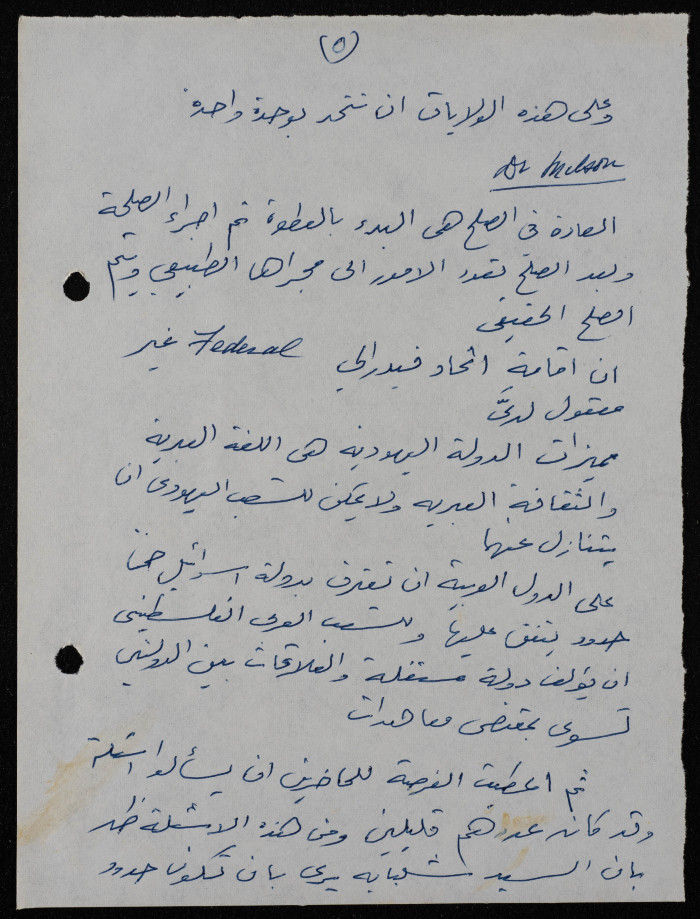 (٥)
وعلى هذه الولايات ان تتحد بوحدة واحدة
Dr Milson
العادة في الصلح هي البدء بالعطوة ثم اجراء الصلحة
وبعد الصلح تعود الامور الى مجراها الطبيعي ويتم
الصلح الحقيقي
ان اقامة اتحاد فيدرالي Federal غير
معقول لديَّ
مميزات الدولة اليهودية هي اللغة العبرية
والثقافة العبرية ولا يمكن للشعب اليهودي ان
يتنازل عنها
على الدول العربية ان تعترف بدولة اسرائيل ضمن
حدود يتفق عليها وللشعب العربي الفلسطيني
ان يؤلف دولة مستقلة والعلاقات بين الدولتين
تسوى بمقتضى معاهدات
ثم اعطيت الفرصة للحاضرين ان يسألوا اسئلة
وقد كان عددهم قليلين ومن هذه الاسئلة ظهر
بان السيد شلباية يرى بان تكون حدود